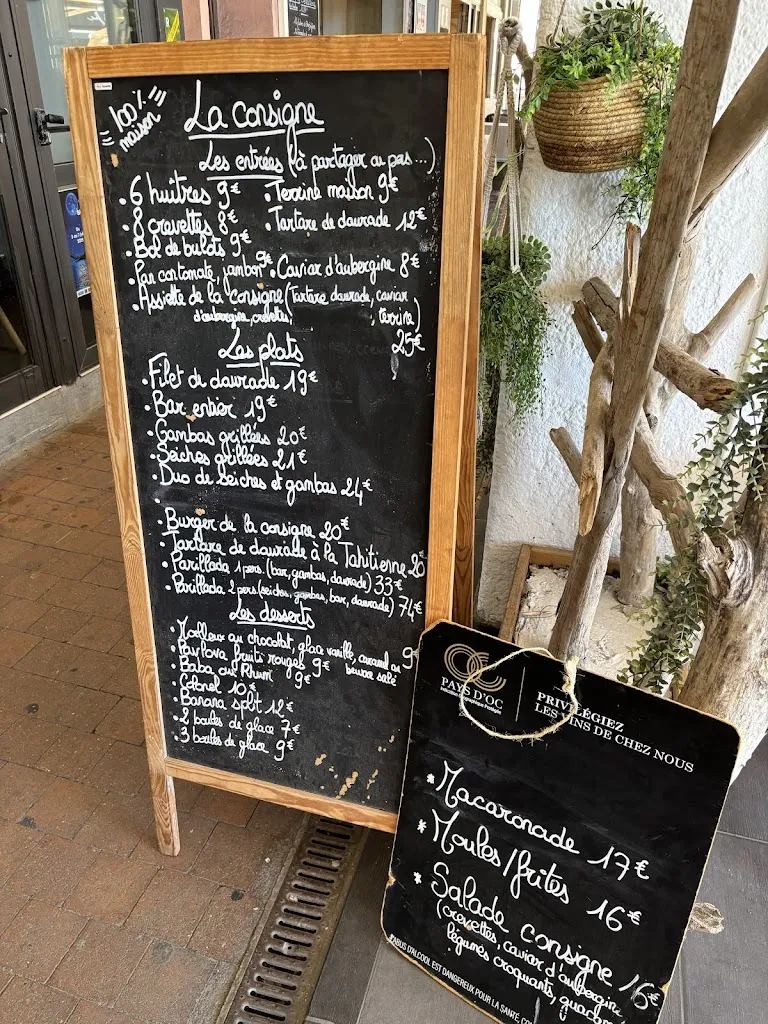 100% maison
La consigne
Les entrées (à partager ou pas...)
. 6 huîtres 9€ . Terrine maison 9€
. 8 crevettes 8€ . Tartare de daurade 12€
. Bol de bulots 9€
. Pan contomaté, jambon 9€ . Caviar d'aubergine 8€
. Assiette de la consigne (Tartare daurade, caviar
d'aubergine, crevettes, terrine)
25€
Les plats
. Filet de daurade 19€
. Bar entier 19€
. Gambas grillées 20€
. Seiches grillées 21€
. Duo de seiches et gambas 24€
.
. Burger de la consigne 20€
. Tartare de daurade à la Tahitienne 20€
. Parillada 1 pers. (bar, gambas, daurade) 33€
. Parillada 2 pers (seiches, gambas, bar, daurade) 74€
Les desserts
. Moelleux au chocolat, glace vanille, caramel au 9€
beurre salé
. Pavlova fruits rouges 9€
. Baba au Rhum 9€
. Colonel 10€
. Banana split 12€
. 2 boules de glace 7€
. 3 boules de glace 9€
PAYS D'OC
Indication Géographique Protégée
PRIVILÉGIEZ
LES VINS DE CHEZ NOUS
* Macaronade 17€
* Moules/frites 16€
* Salade consigne 16€
(crevettes, caviar d'aubergine,
légumes croquants, guacam
L'ABUS D'ALCOOL EST DANGEREUX POUR LA SANTÉ, CO